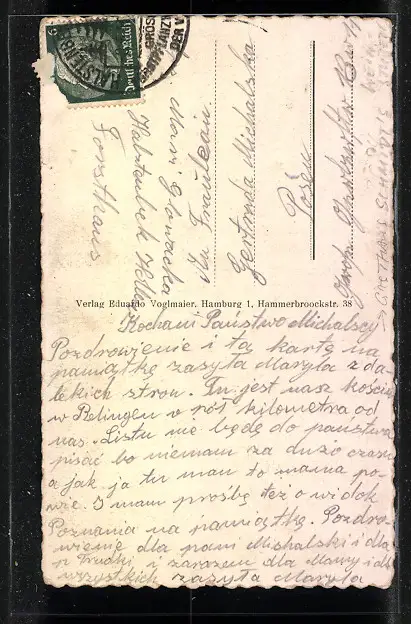 6
Deutsches Reich
GROS
DER V
Mari Glowacka
Halstenbek Holst
Forsthaus
An Fräulein
Gertruda Michalska
Posen
Verlag Eduardo Voglmaier. Hamburg 1, Hammerbroockstr. 38
Kochani Państwo Michalscy
Pozdrowienie i tą kartę na
pamiątkę zasyła Maryla z da-
lekich stron. Tu jest nasz kościół
w Relingen w pół kilometra od
nas. Listu nie będę do państwa
pisać bo niemam za dużo czasu
a jak ja tu mam to mama po-
wie. I mam prośbę też o widok
Poznania na pamiątkę. Pozdro-
wienie dla pani Michalski i dla
p. Trudki i zarazem dla Mamy i dla
wszystkich zasyła Maryla